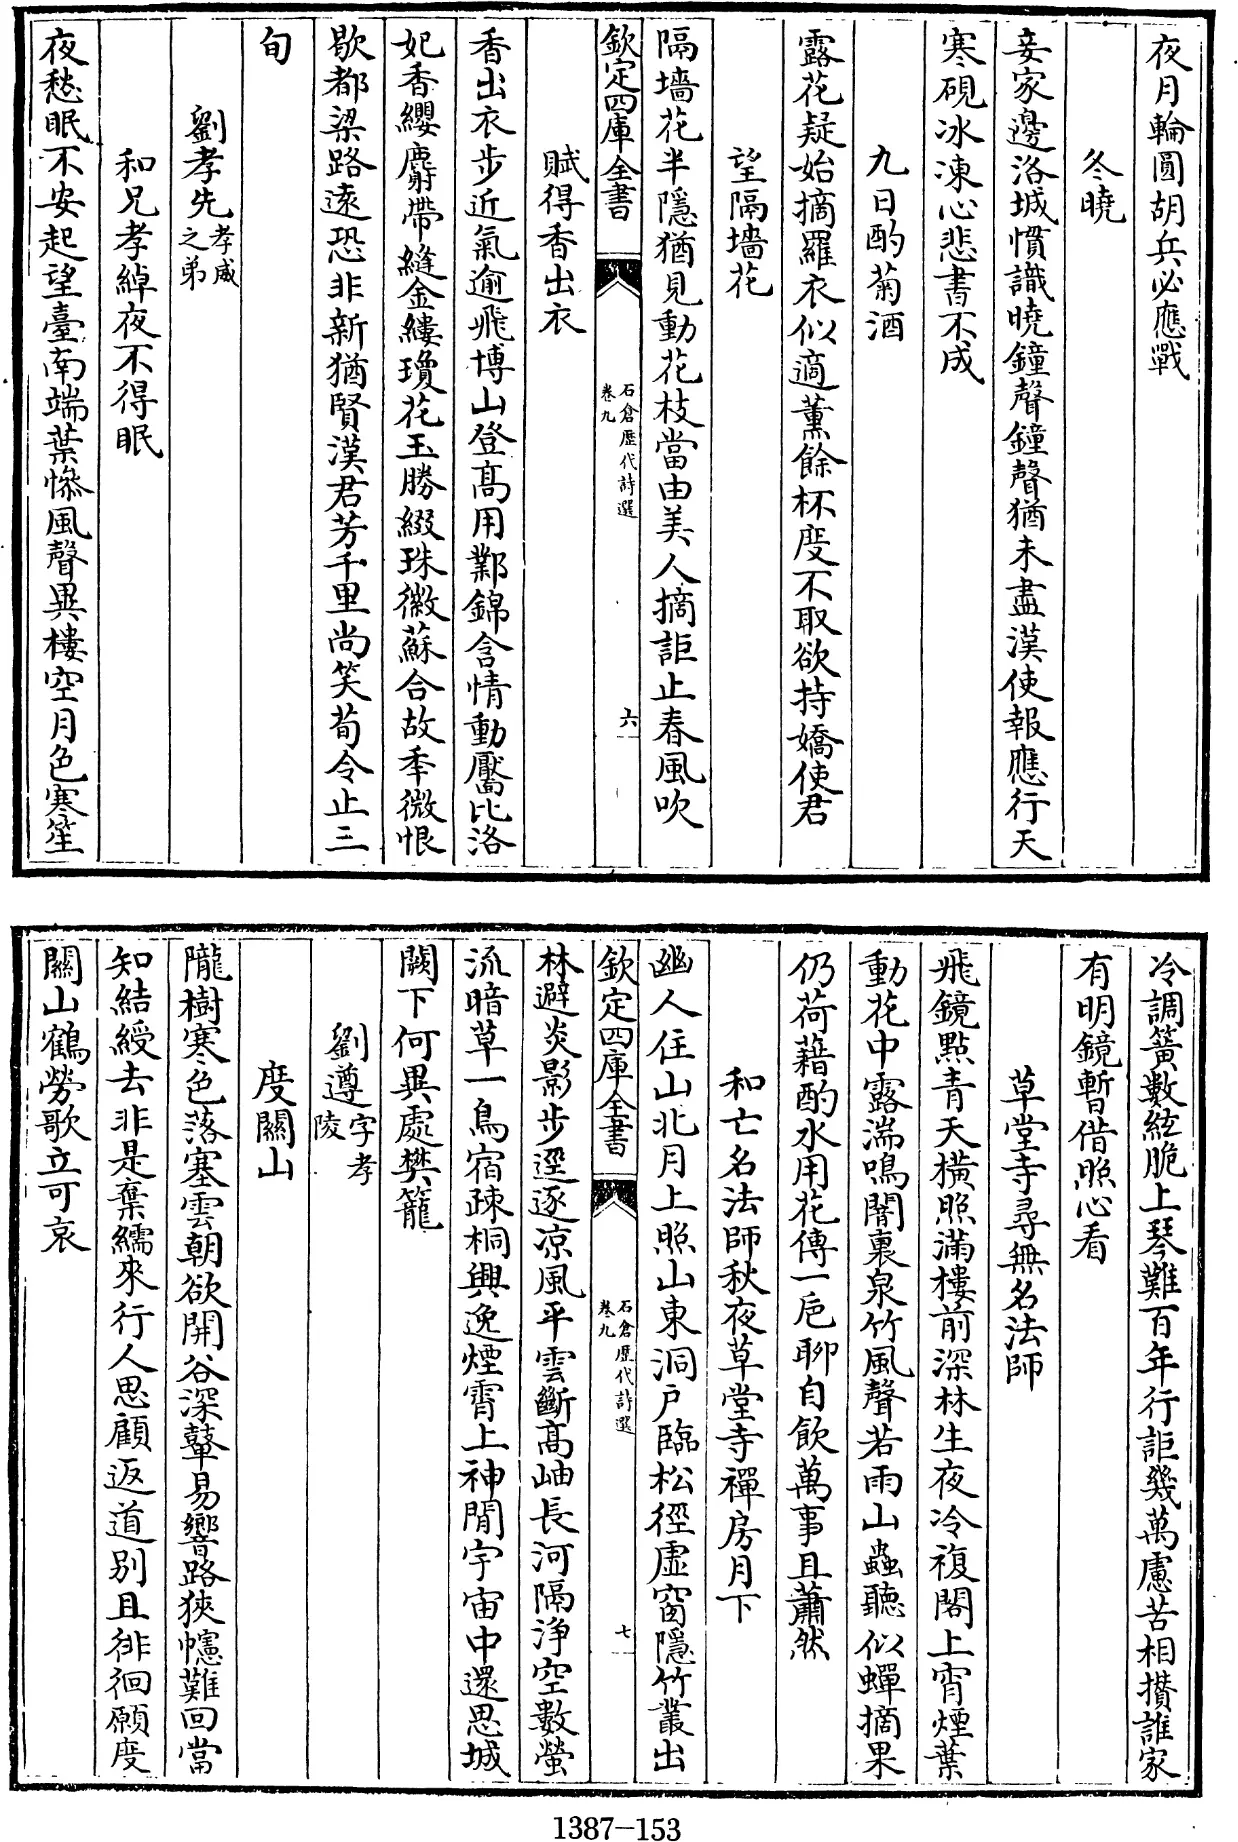 夜月輪圓胡兵必應戰
冬曉
妾家邊洛城慣識曉鐘聲鐘聲猶未盡漢使報應行天
寒硯冰凍心悲書不成
九日酌菊酒
露花疑始摘羅衣似適薰餘杯度不取欲持嬌使君
望隔墻花
隔墻花半隱猶見動花枝當由美人摘詎止春風吹
欽定四庫全書
石倉歷代詩選
卷九
六
賦得香出衣
香出衣步近氣逾飛博山登高用鄴錦含情動靨比洛
妃香纓麝帶縫金縷瓊花玉勝綴珠徽蘇合故季微恨
歇都梁路遠恐非新猶賢漢君芳千里尚笑荀令止三
旬
劉孝先孝威之弟
和兄孝綽夜不得眠
夜愁眠不安起望臺南端葉慘風聲異樓空月色寒笙
冷調簧數絃脆上琴難百年行詎幾萬慮苦相攢誰家
有明鏡暫借照心看
草堂寺尋無名法師
飛鏡點青天橫照滿樓前深林生夜冷複閣上宵煙葉
動花中露湍鳴闇裏泉竹風聲若雨山蟲聽似蟬摘果
仍荷藉酌水用花傳一巵聊自飲萬事且蕭然
和亡名法師秋夜草堂寺禪房月下
幽人住山北月上照山東洞戶臨松徑虛窗隱竹叢出
欽定四庫全書
石倉歷代詩選
卷九
七
林避炎影步逕逐凉風平雲斷高岫長河隔淨空數螢
流暗草一鳥宿疎桐興逸煙霄上神閒宇宙中還思城
闕下何異處樊籠
劉遵字孝陵
度關山
隴樹寒色落塞雲朝欲開谷深鼙易響路狹幰難回當
知結綬去非是棄繻來行人思顧返道别且徘徊願度
關山鶴勞歌立可哀
1387-153